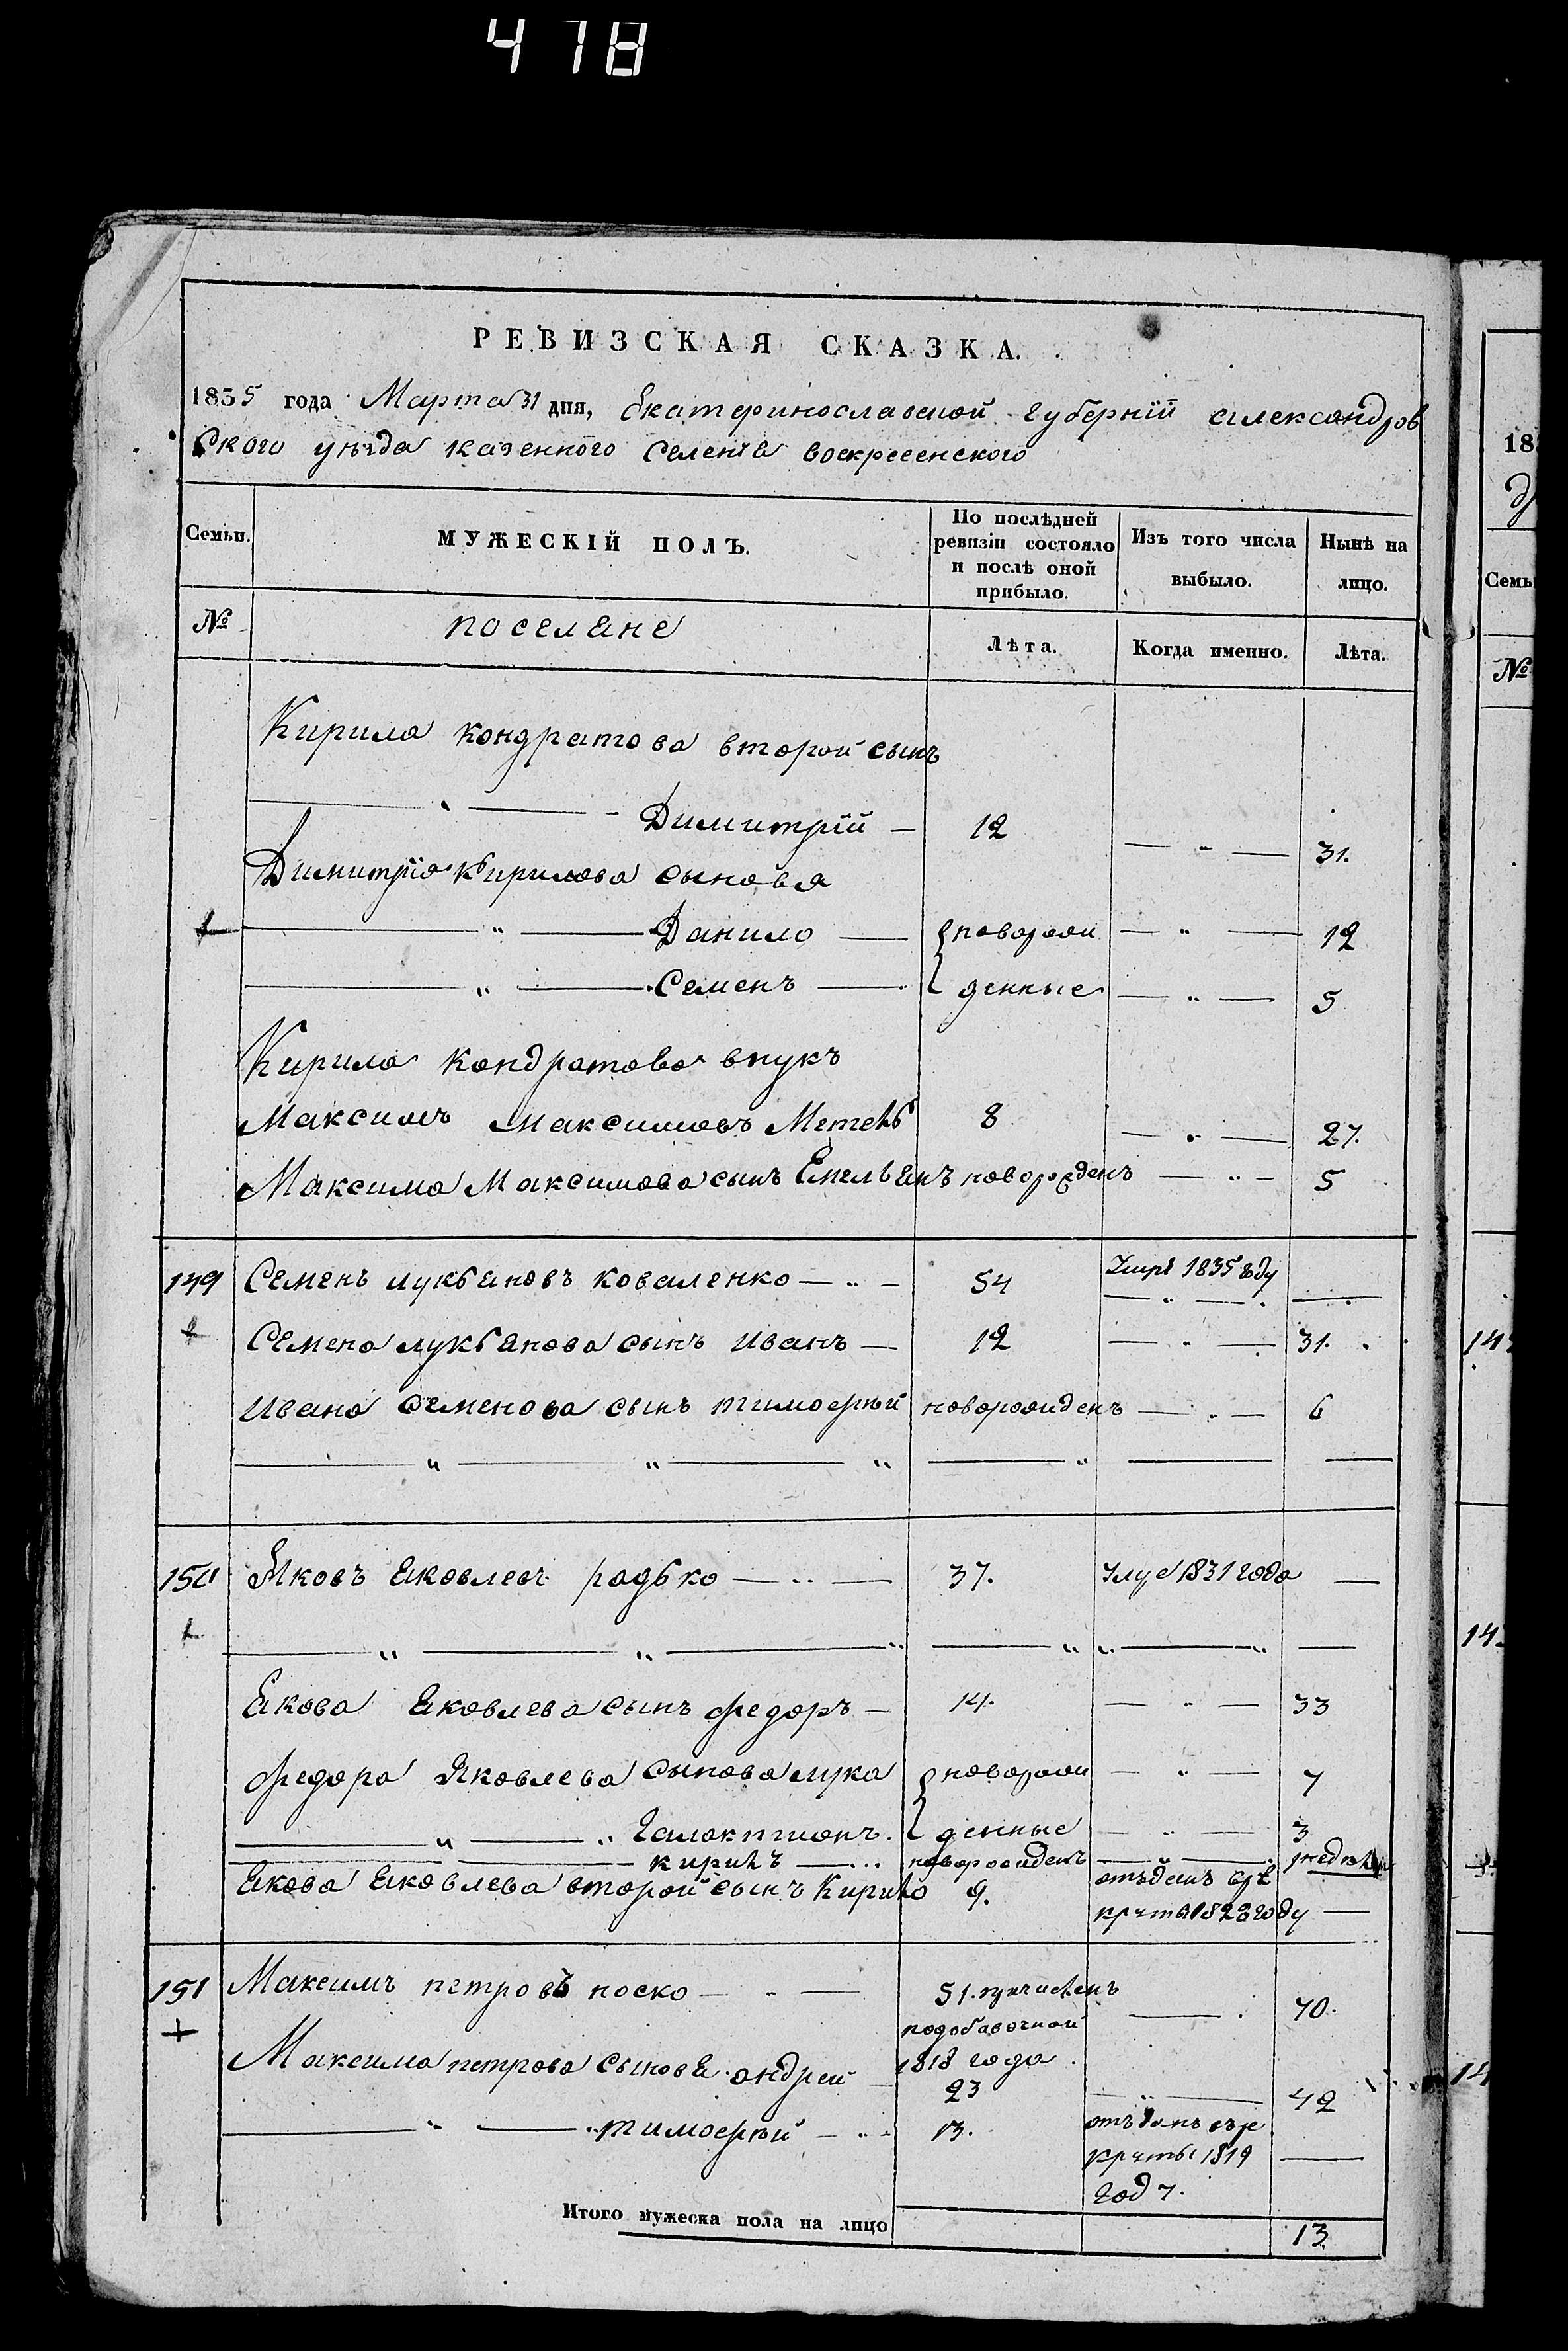 478
РЕВИЗСКАЯ СКАЗКА.
1835 года Марта 31 дня, Екатеринославской губерніи александров
ского уѣзда казенного селенія воскресенского
Семьи. МУЖЕСКІЙ ПОЛЪ. По послѣдней ревизіи состояло и послѣ оной прибыло. Изъ того числа выбыло. Нынѣ на лицо.
№ поселяне Лѣта. Когда именно. Лѣта.
Кирила кондратова второй сынъ
Димитрій 12 31.
Димитрія Кирилова сыновя
Данило новорож 12
Семенъ денные 5
Кирила кондратова внукъ
Максимъ максимовъ 8 27.
Максима Максимова сынъ Емельянъ новорожденъ 5
149 Семенъ лукьяновъ коваленко 54 Умре 1835 году
Семена лукьянова сынъ иванъ 12 31.
ивана семенова сынъ тимофѣй новорожденъ 6
150 Яковъ яковлевъ радько 37. 1831 года
Якова яковлева сынъ федоръ 14. 33
федора яковлева сынова лука новорож 7
галактионъ. денные 3
кирилъ новорожденъ
Якова яковлева второй сынъ Кирило 9. отъданъ врѣ
круты 1828 году
151 Максимъ петровъ носко 51. причисленъ 70.
подобавочной
Максима петрова сыновя андрей 1818 года
23 42
тимофѣй 13. отъданъ въре
круты 1819
году.
Итого мужеска пола на лицо 13
18
Семь
№